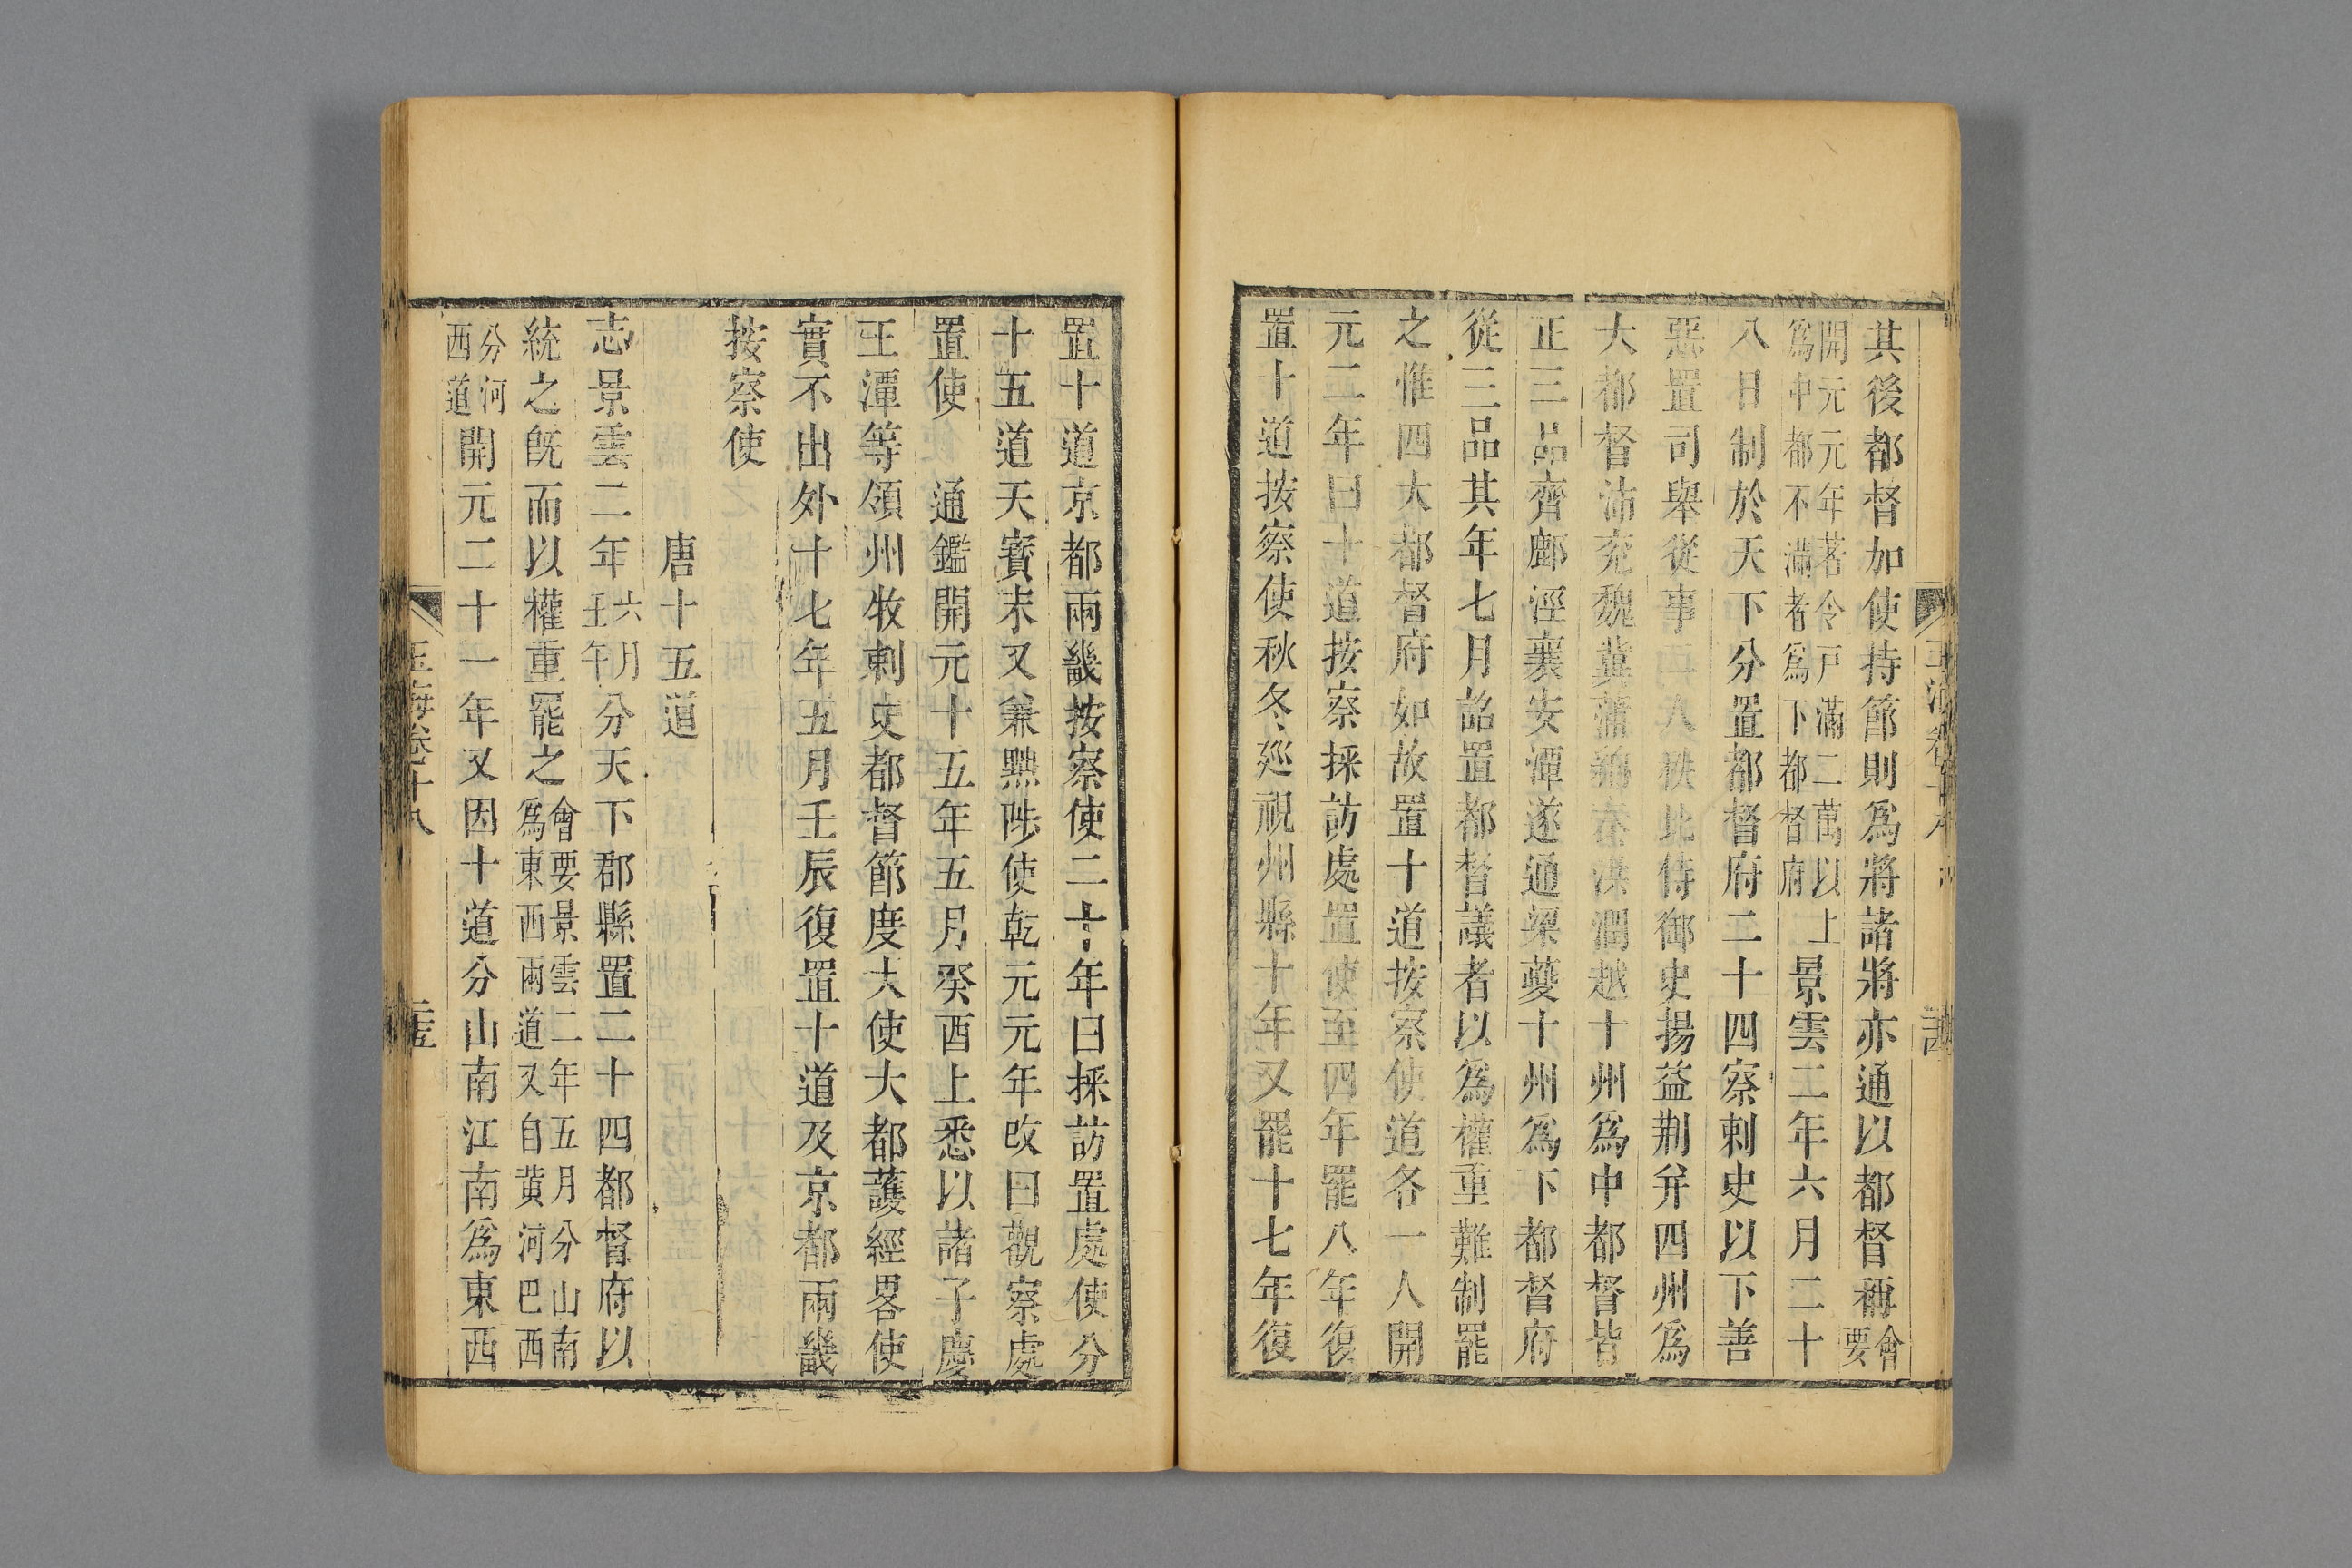 其後都督加使持節則爲將諸將亦通以都督稱會要
開元元年著令戸滿二萬以上爲中都不滿者爲下都督府景雲二年六月二十
八日制於天下分置都督府二十四察刺史以下善
惡置司舉從事二人秩比侍御史揚益荆并四州爲
大都督沛兖魏冀蒲綿秦洪潤越十州爲中都督皆
正三品齊鄜涇襄安潭遂通梁夔十州爲下都督府
從三品其年七月詔置都督議者以爲權重難制罷
之惟四大都督府如故置十道按察使道各一人開
元二年曰十道按察採訪處置使至四年罷八年復
置十道按察使秋冬廵視州縣十年又罷十七年復
置十道京都兩畿按察使二十年曰採訪置處使分
十五道天寳末又兼黜陟使乾元元年改曰觀察處
置使 通鑑開元十五年五月癸酉上悉以諸子慶
王潭等領州牧刺史都督節度大使大都護經畧使
實不出外十七年五月壬辰復置十道及京都兩畿
按察使
唐十五道
志景雲二年六月壬午分天下郡縣置二十四都督府以
統之旣而以權重罷之會要景雲二年五月分山南爲東西兩道又自黃河巴西
分河西道開元二十一年又因十道分山南江南爲東西
玉海卷十八